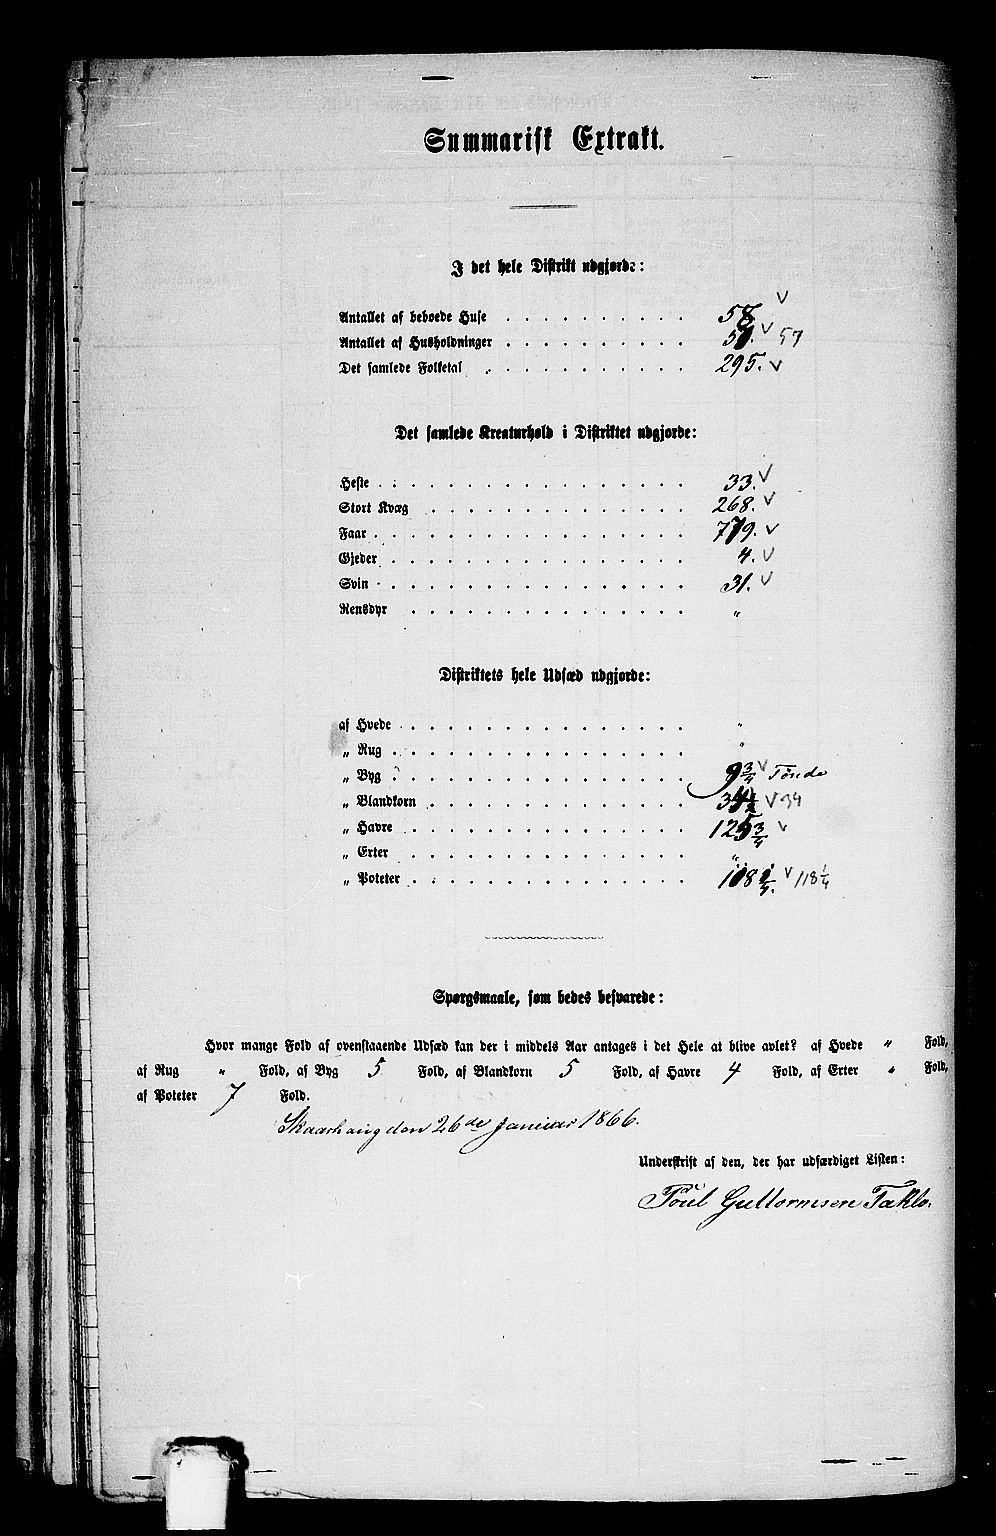 Summarisk Extrakt.
I det hele Distrikt udgjorde:
Antallet af beboede Huse . . . . . . . . . . 58 v
Antallet af Husholdninger . . . . . . . . . . v 57
Det samlede Folketal . . . . . . . . . . 295. v
Det samlede Kreaturhold i Distriktet udgjorde:
Heste . . . . . . . . . . 33. v
Stort Kvæg . . . . . . . . . . 268. v
Faar . . . . . . . . . . 779. v
Gjeder . . . . . . . . . . 4. v
Svin . . . . . . . . . . 31. v
Rensdyr . . . . . . . . . . "
Distriktets hele Udsæd udgjorde:
af Hvede . . . . . . . . . . "
„ Rug . . . . . . . . . . "
„ Byg . . . . . . . . . . 9 3/4 v Tønde
„ Blandkorn . . . . . . . . . . v 34
„ Havre . . . . . . . . . . 125 3/4 v
„ Erter . . . . . . . . . . "
„ Poteter . . . . . . . . . . v 118 1/4
Spørgsmaale, som bedes besvarede:
Hvor mange Fold af ovenstaaende Udsæd kan der i middels Aar antages i det Hele at blive avlet? af Hvede " Fold,
af Rug " Fold, af Byg 5 Fold, af Blandkorn 5 Fold, af Havre 4 Fold, af Erter " Fold,
af Poteter 7 Fold.
Skaarhaug den 26de Januar 1866.
Underskrift af den, der har udfærdiget Listen:
Poul Guttormsen Taklo.